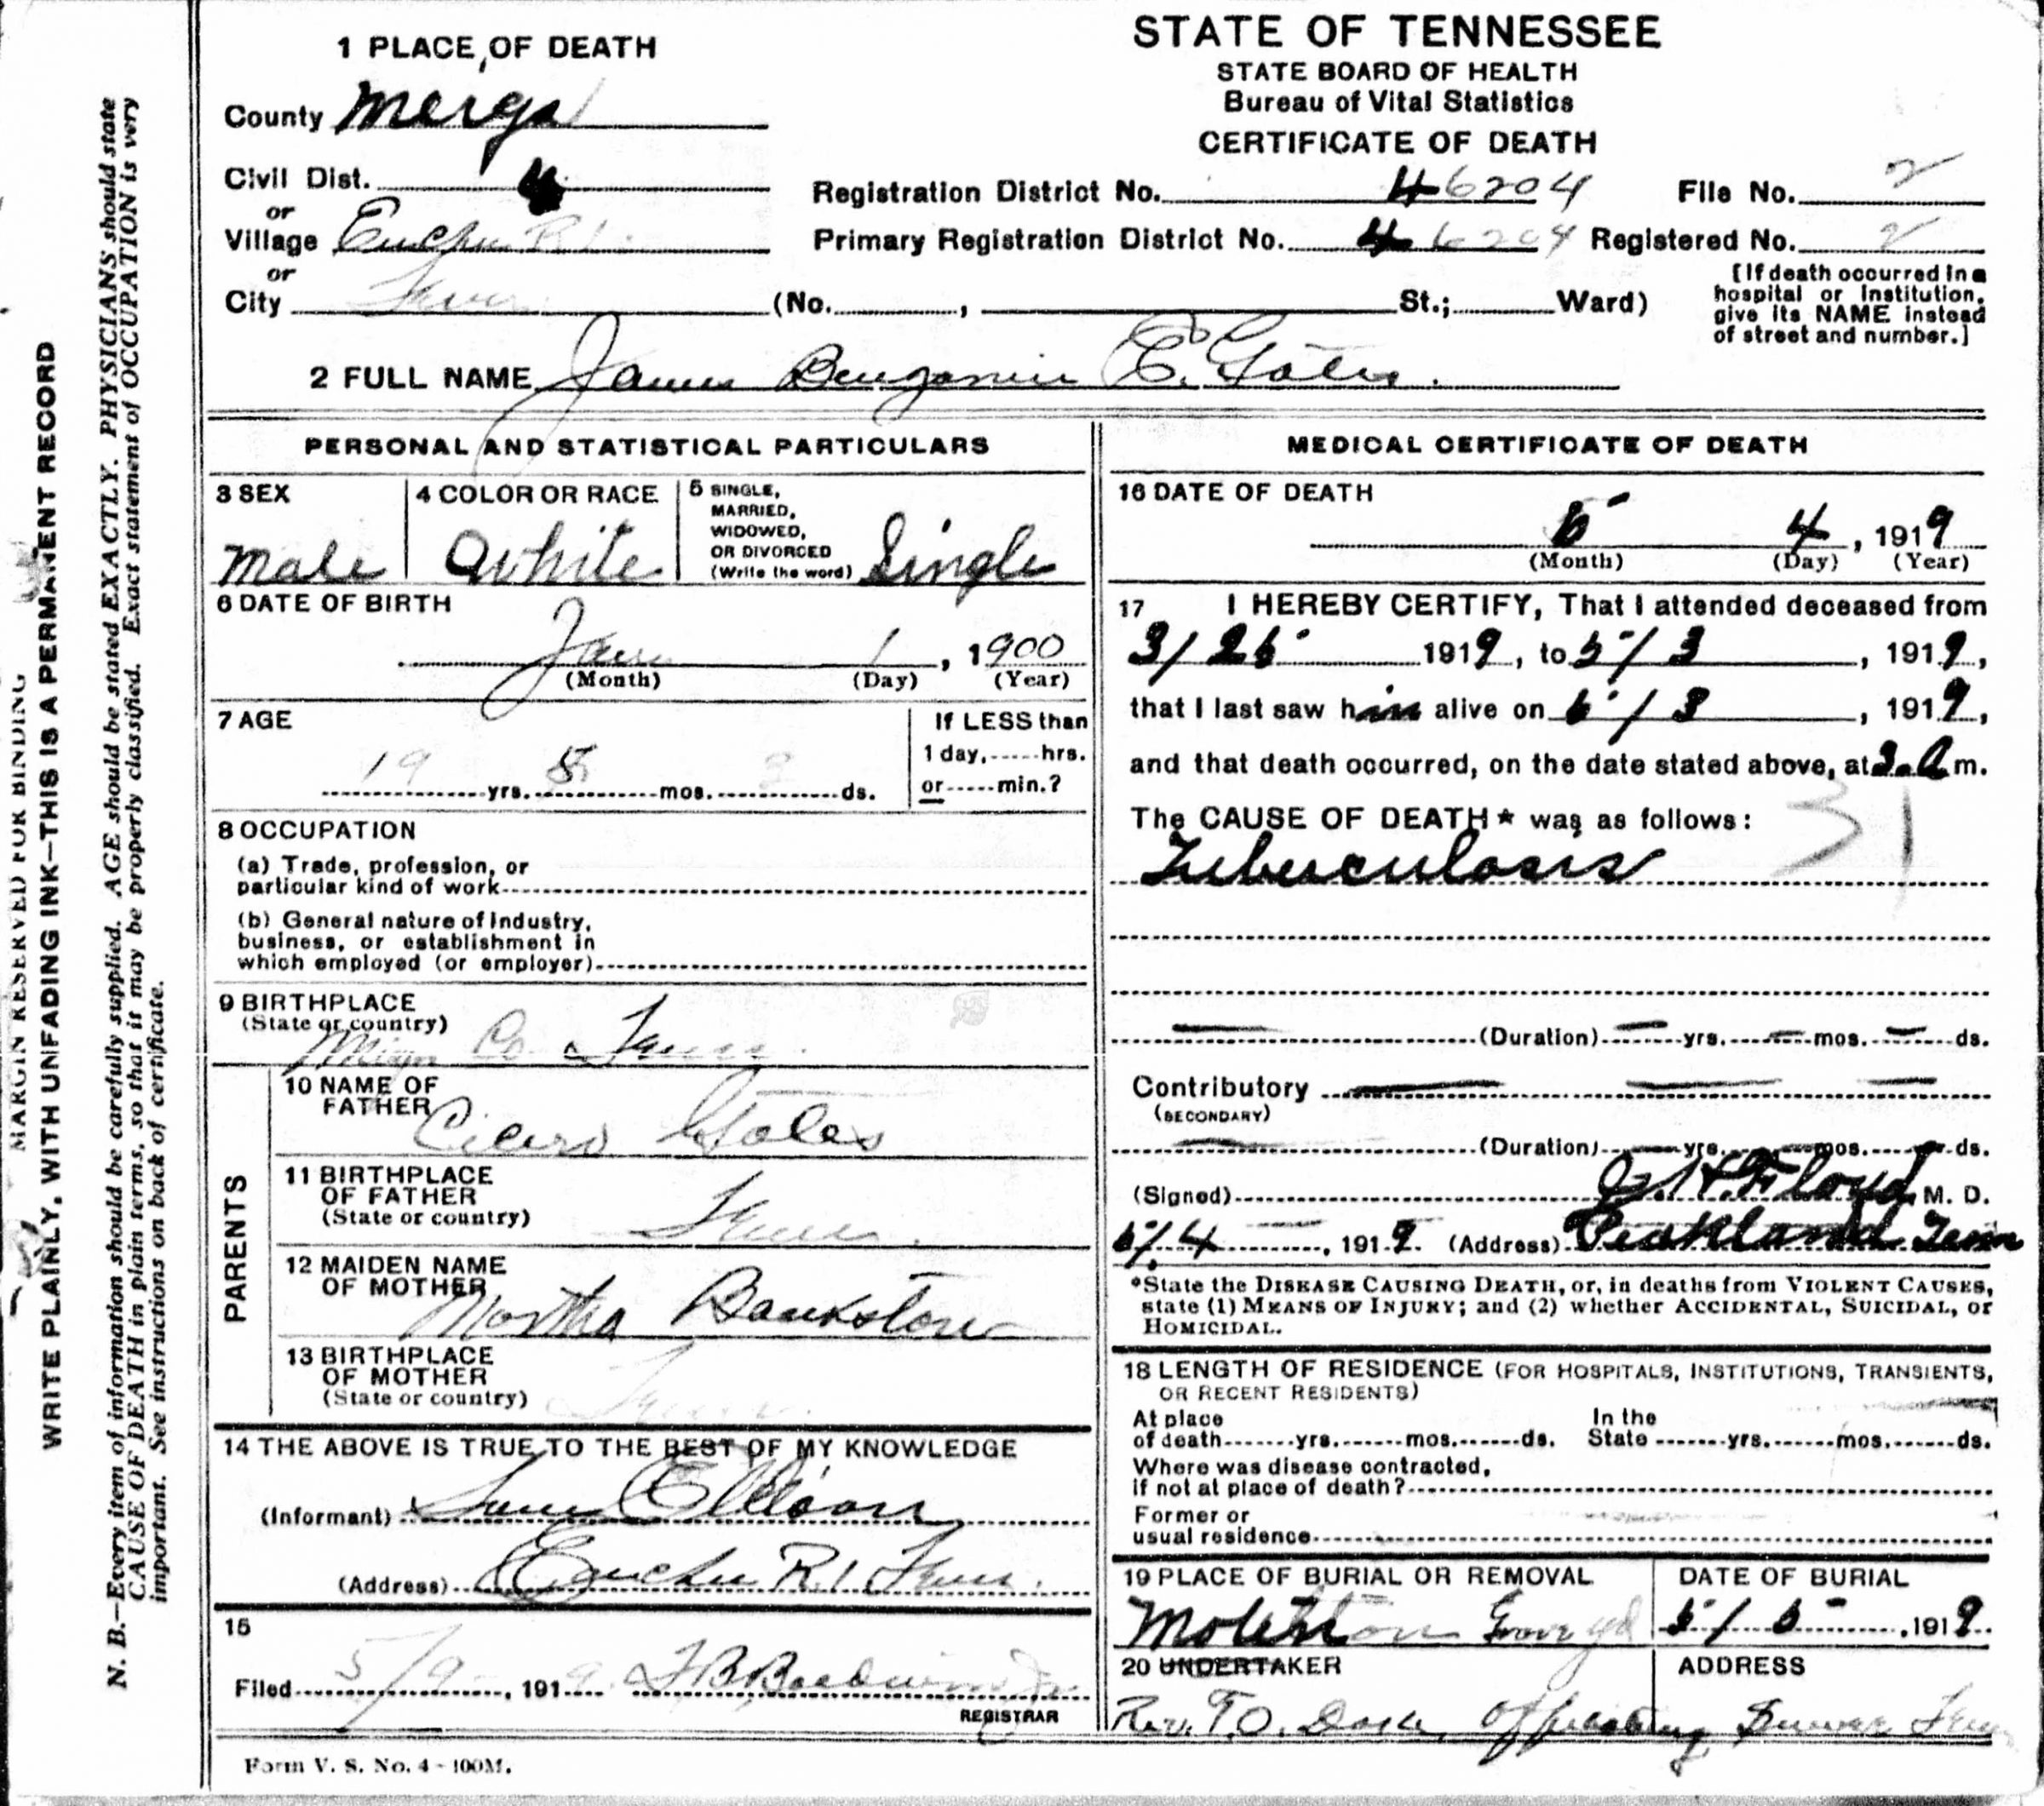 1 PLACE OF DEATH
County Meigs
Civil Dist. 4
or
Village Euchee R 1
or
City Tenn (No. , St.; Ward)
STATE OF TENNESSEE
STATE BOARD OF HEALTH
Bureau of Vital Statistics
CERTIFICATE OF DEATH
Registration District No. 46204 File No. 2
Primary Registration District No. 46204 Registered No. 2
[If death occurred in a
hospital or institution,
give its NAME instead
of street and number.]
2 FULL NAME James Benjamin E. Gates.
PERSONAL AND STATISTICAL PARTICULARS
3 SEX
Male
4 COLOR OR RACE
White
5 SINGLE,
MARRIED,
WIDOWED,
OR DIVORCED
(Write the word) Single
6 DATE OF BIRTH
Jan 1, 1900
(Month) (Day) (Year)
7 AGE
19 yrs. mos. 3 ds.
If LESS than
1 day, hrs.
or min.?
8 OCCUPATION
(a) Trade, profession, or
particular kind of work
(b) General nature of Industry,
business, or establishment in
which employed (or employer)
9 BIRTHPLACE
(State or country)
Meigs Co. Tenn.
PARENTS
10 NAME OF
FATHER
Cicero Gates
11 BIRTHPLACE
OF FATHER
(State or country)
Tenn.
12 MAIDEN NAME
OF MOTHER
Martha Bankston
13 BIRTHPLACE
OF MOTHER
(State or country)
Tenn.
14 THE ABOVE IS TRUE TO THE BEST OF MY KNOWLEDGE
(Informant) Ellison
(Address) Euchee R.1 Tenn.
15
Filed 5/9, 1919. REGISTRAR
Form V. S. No. 4-100M.
MEDICAL CERTIFICATE OF DEATH
16 DATE OF DEATH
5 4, 1919
(Month) (Day) (Year)
17 I HEREBY CERTIFY, That I attended deceased from
3/25 1919, to 5/3, 1919,
that I last saw him alive on 5/3, 1919,
and that death occurred, on the date stated above, at 3 a m.
The CAUSE OF DEATH* was as follows:
31
Tuberculosis
(Duration) yrs. mos. ds.
Contributory
(SECONDARY)
(Duration) yrs. mos. ds.
(Signed) Floyd M. D.
5/4, 1919. (Address) Peakland Tenn
*State the DISEASE CAUSING DEATH, or, in deaths from VIOLENT CAUSES,
state (1) MEANS OF INJURY; and (2) whether ACCIDENTAL, SUICIDAL, or
HOMICIDAL.
18 LENGTH OF RESIDENCE (FOR HOSPITALS, INSTITUTIONS, TRANSIENTS,
OR RECENT RESIDENTS)
At place
of death yrs. mos. ds.
In the
State yrs. mos. ds.
Where was disease contracted,
if not at place of death?
Former or
usual residence
19 PLACE OF BURIAL OR REMOVAL
Grave yd
DATE OF BURIAL
5/5, 1919
20 UNDERTAKER
ADDRESS
Rev. T.O. officiating Tenn
MARGIN RESERVED FOR BINDING
WRITE PLAINLY, WITH UNFADING INK—THIS IS A PERMANENT RECORD
N. B.—Every item of information should be carefully supplied. AGE should be stated EXACTLY. PHYSICIANS should state
CAUSE OF DEATH in plain terms, so that is may be properly classified. Exact statement of OCCUPATION is very
important. See instructions on back of certificate.